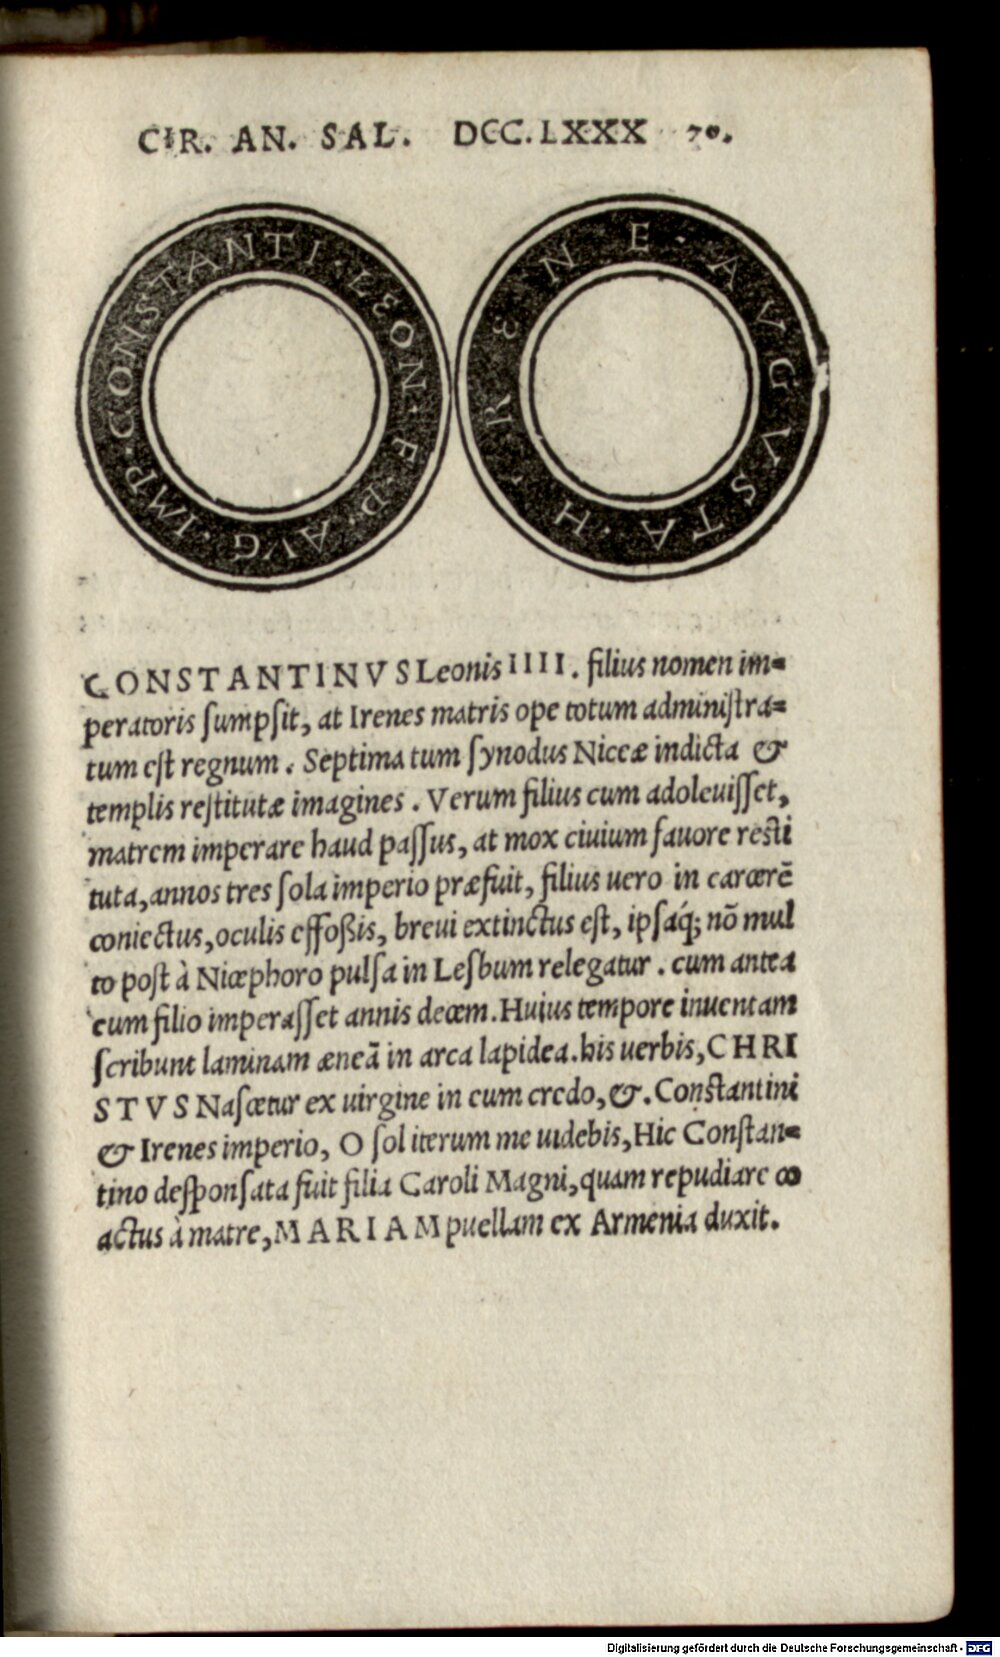 CIR. AN. SAL. DCC.LXXX 70.
IMP·CONSTANTI·LEON·F·P·AVG·
H·RENE·AVGVSTA·
CONSTANTINVS Leonis IIII. filius nomen im=
peratoris ſumpſit, at Irenes matris ope totum adminiſtra=
tum eſt regnum. Septima tum ſynodus Niceæ indicta &
templis reſtitutæ imagines. Verum filius cum adoleuiſſet,
matrem imperare haud paſſus, at mox ciuium fauore resti
tuta, annos tres ſola imperio præfuit, filius uero in carcerẽ
coniectus, oculis effoßis, breui extinctus eſt, ipſaq́; nõ mul
to poſt à Nicephoro pulſa in Leſbum relegatur. cum antea
cum filio imperaſſet annis decem. Huius tempore inuentam
ſcribunt laminam æneã in arca lapidea. his uerbis, CHRI
STVS Naſcetur ex uirgine in eum credo, &. Constantini
& Irenes imperio, O ſol iterum me uidebis, Hic Conſtan=
tino deſponſata fuit filia Caroli Magni, quam repudiare co
actus à matre, MARIAM puellam ex Armenia duxit.
Digitalisierung gefördert durch die Deutsche Forschungsgemeinschaft - DFG